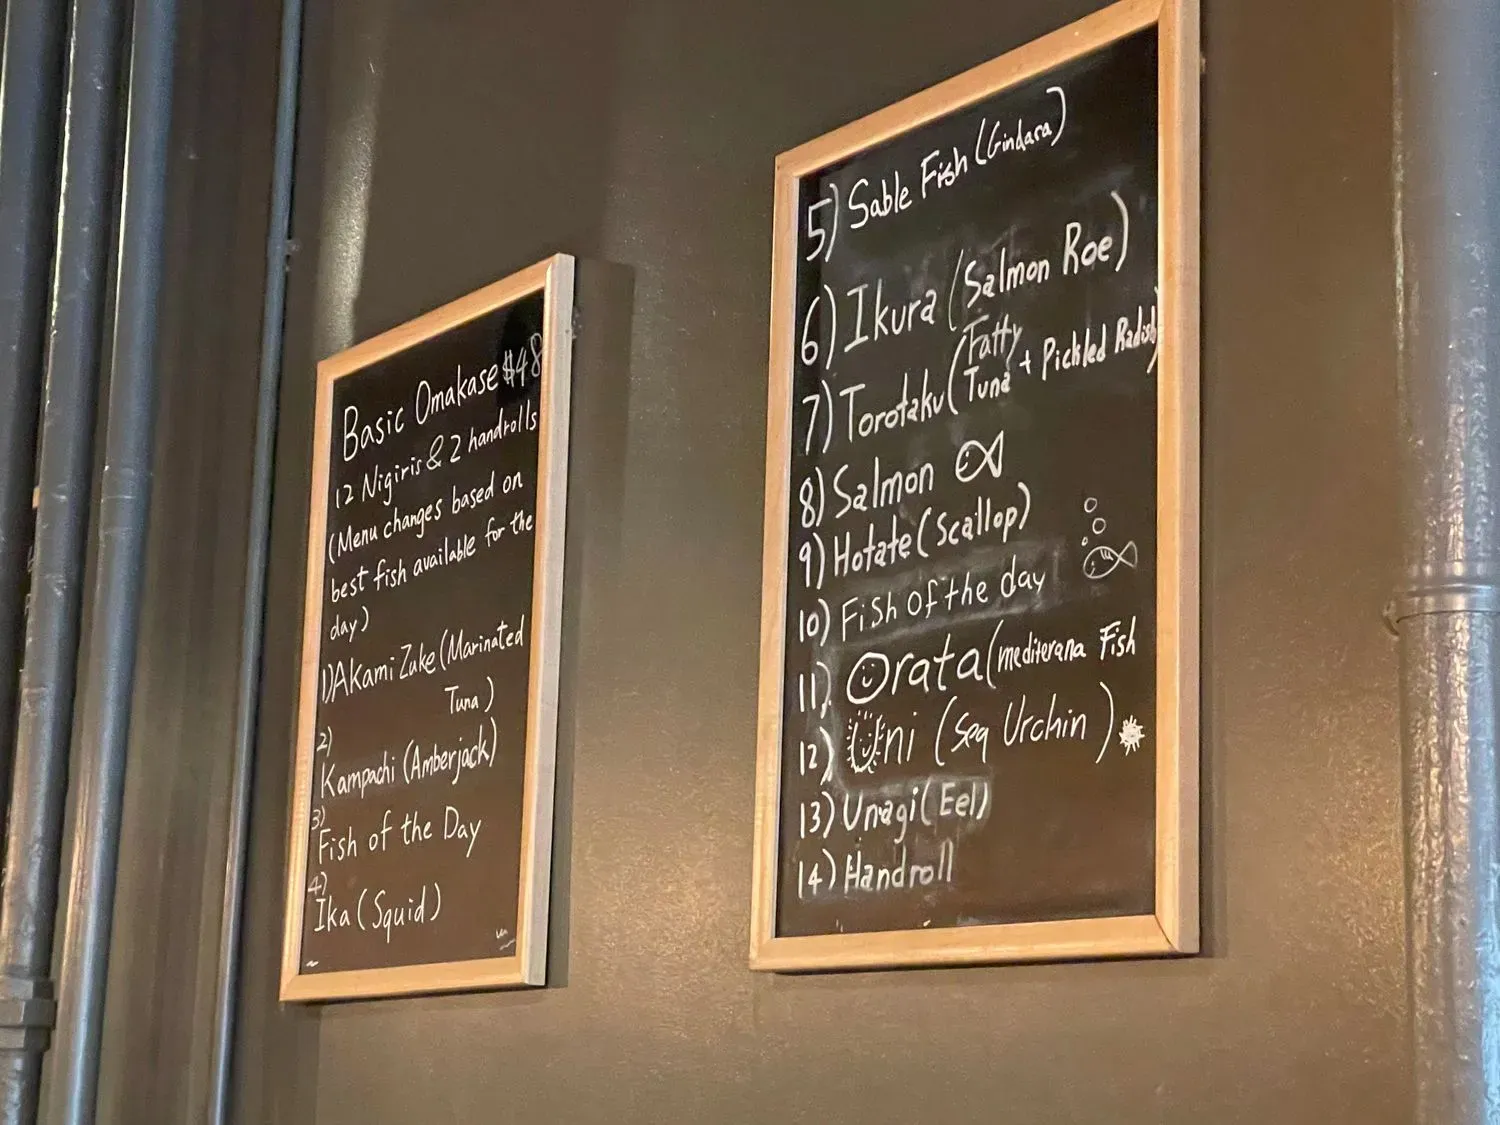 Basic Omakase $48
12 Nigiris & 2 handrolls
(Menu changes based on
best fish available for the
day)
1) Akami Zuke (Marinated
Tuna)
2)
Kampachi (Amberjack)
3)
Fish of the Day
4)
Ika (Squid)
5) Sable Fish (Gindara)
6) Ikura (Salmon Roe)
7) Torotaku (Fatty Tuna + Pickled Radish)
8) Salmon
9) Hotate (Scallop)
10) Fish of the day
11) Orata (mediterana Fish
12) Uni (Sea Urchin)
13) Unagi (Eel)
14) Handroll